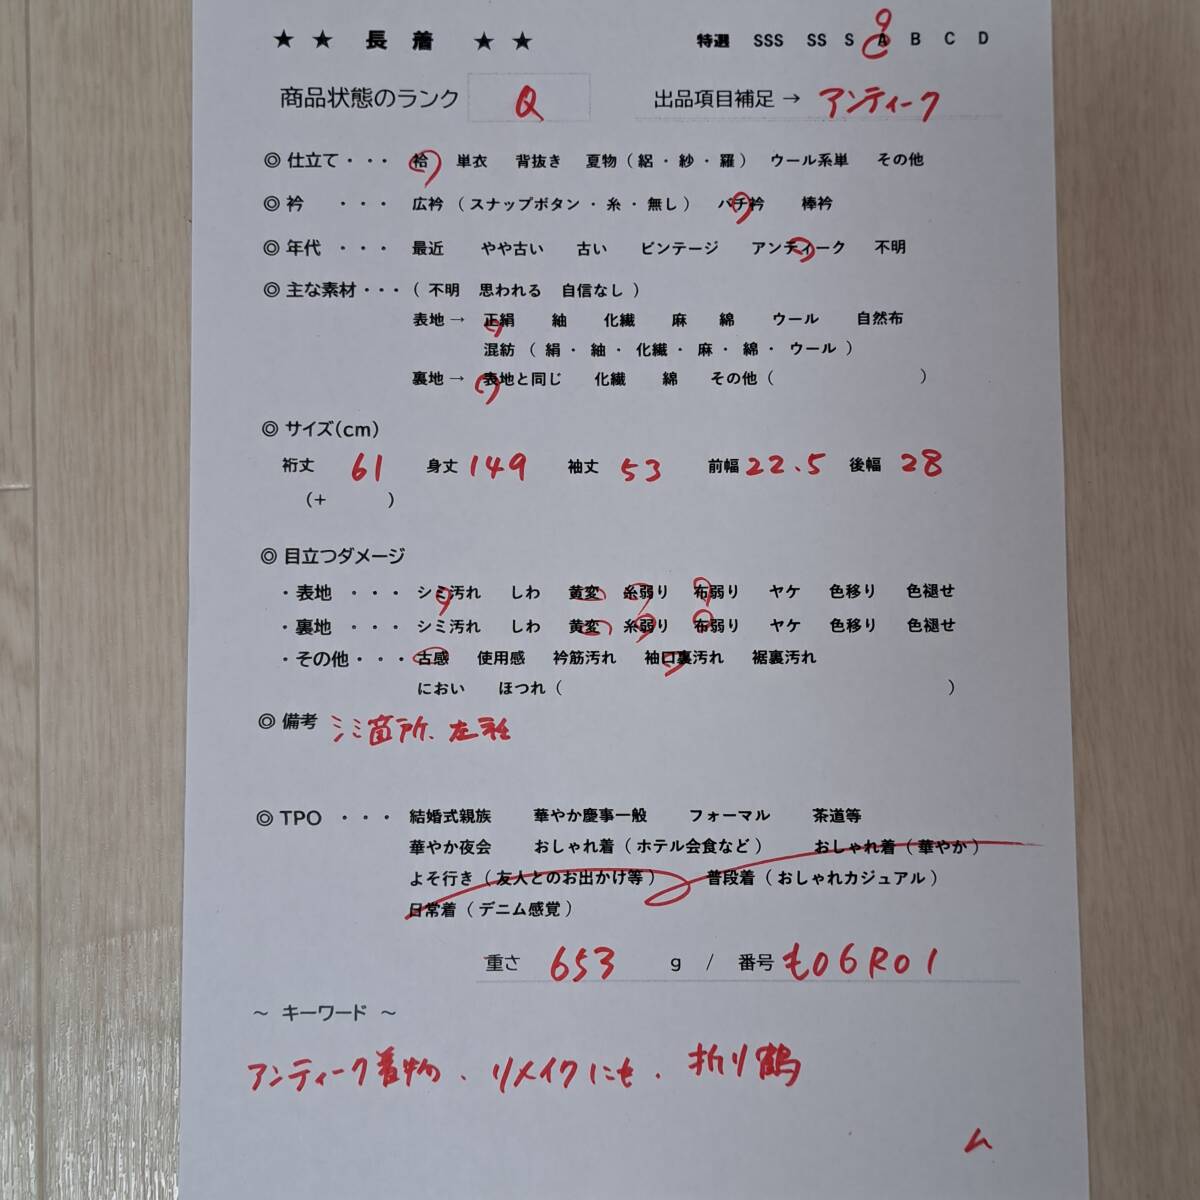 ★ ★ 長 着 ★ ★ 特選 SSS SS S A B C D
商品状態のランク Q 出品項目補足 → アンティーク
◎ 仕立て・・・ 袷 単衣 背抜き 夏物(絽・紗・羅) ウール系単 その他
◎ 衿 ・・・ 広衿(スナップボタン・糸・無し) バチ衿 棒衿
◎ 年代 ・・・ 最近 やや古い 古い ビンテージ アンティーク 不明
◎ 主な素材・・・(不明 思われる 自信なし)
表地→ 正絹 紬 化繊 麻 綿 ウール 自然布
混紡(絹・紬・化繊・麻・綿・ウール)
裏地→ 表地と同じ 化繊 綿 その他( )
◎ サイズ(cm)
裄丈 61 身丈 149 袖丈 53 前幅 22.5 後幅 28
(+ )
◎ 目立つダメージ
・表地 ・・・ シミ汚れ しわ 黄変 糸弱り 布弱り ヤケ 色移り 色褪せ
・裏地 ・・・ シミ汚れ しわ 黄変 糸弱り 布弱り ヤケ 色移り 色褪せ
・その他・・・ 古感 使用感 衿筋汚れ 袖口裏汚れ 裾裏汚れ
におい ほつれ( )
◎ 備考 シミ箇所、左衽
◎ TPO ・・・ 結婚式親族 華やか慶事一般 フォーマル 茶道等
華やか夜会 おしゃれ着(ホテル会食など) おしゃれ着(華やか)
よそ行き(友人とのお出かけ等) 普段着(おしゃれカジュアル)
日常着(デニム感覚)
重さ 653 g / 番号 も06R01
~ キーワード ~
アンティーク着物、リメイクにも、折り鶴
ム